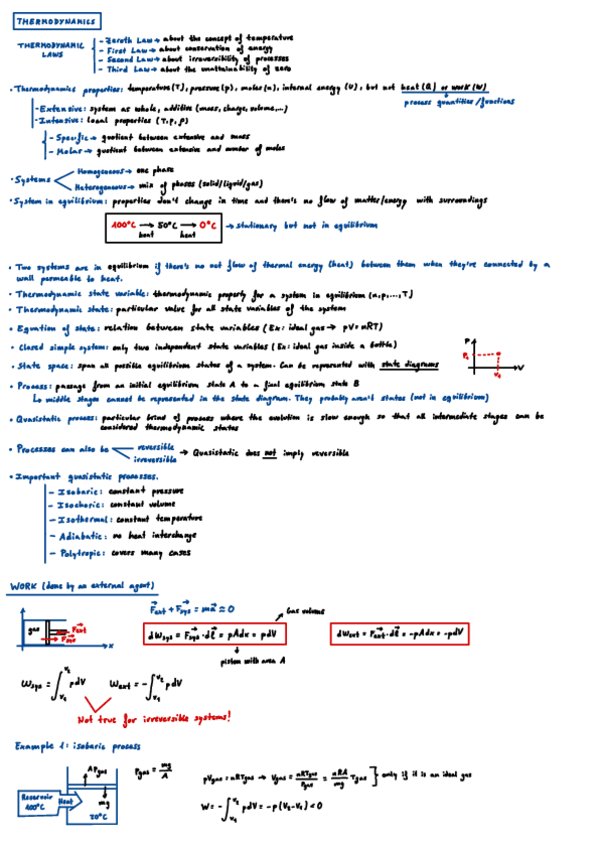 THERMODYNAMICS
THERMODYNAMIC LAWS
- Zeroth Law → about the concept of temperature
- First Law → about conservation of energy
- Second Law → about irreversibility of processes
- Third Law → about the unattainability of zero
• Thermodynamics properties: temperature (T), pressure (p), moles (n), internal energy (U), but not heat (Q) or work (W)
process quantities/functions
- Extensive: system as whole, additive (mass, charge, volume,...)
- Intensive: local properties (T, p, ρ)
- Specific → quotient between extensive and mass
- Molar → quotient between extensive and number of moles
• Systems
Homogeneous → one phase
Heterogeneous → mix of phases (solid/liquid/gas)
• System in equilibrium: properties don't change in time and there's no flow of matter/energy with surroundings
100°C → 50°C → 0°C → stationary but not in equilibrium
heat heat
• Two systems are in equilibrium if there's no net flow of thermal energy (heat) between them when they're connected by a
wall permeable to heat.
• Thermodynamic state variable: thermodynamic property for a system in equilibrium (n, p, ..., T)
• Thermodynamic state: particular value for all state variables of the system
• Equation of state: relation between state variables (Ex: ideal gas → pV = nRT)
• Closed simple system: only two independent state variables (Ex: ideal gas inside a bottle)
• State space: span all possible equilibrium states of a system. Can be represented with state diagrams
P
P₁
V₁
V
• Process: passage from an initial equilibrium state A to a final equilibrium state B
↳ middle stages cannot be represented in the state diagram. They probably aren't states (not in equilibrium)
• Quasistatic process: particular kind of process where the evolution is slow enough so that all intermediate stages can be
considered thermodynamic states
• Processes can also be
reversible
irreversible
→ Quasistatic does not imply reversible
• Important quasistatic processes.
- Isobaric: constant pressure
- Isochoric: constant volume
- Isothermal: constant temperature
- Adiabatic: no heat interchange
- Polytropic: covers many cases
WORK (done by an external agent)
F⃗ext + F⃗sys = ma⃗ ≃ 0
Gas volume
gas
F⃗ext
F⃗sys
x
dWsys = F⃗sys · dl⃗ = pAdx = pdV
dWext = F⃗ext · dl⃗ = -pAdx = -pdV
piston with area A
Wsys = ∫V₁V₂ pdV Wext = -∫V₁V₂ pdV
Not true for irreversible systems!
Example 1: isobaric process
APgas
mg
Reservoir 100°C
Heat
20°C
Pgas = mg/A
pVgas = nRTgas → Vgas = nRTgas/Pgas = nRA/mg Tgas } only if it is an ideal gas
W = -∫V₁V₂ pdV = -p(V₂-V₁) < 0